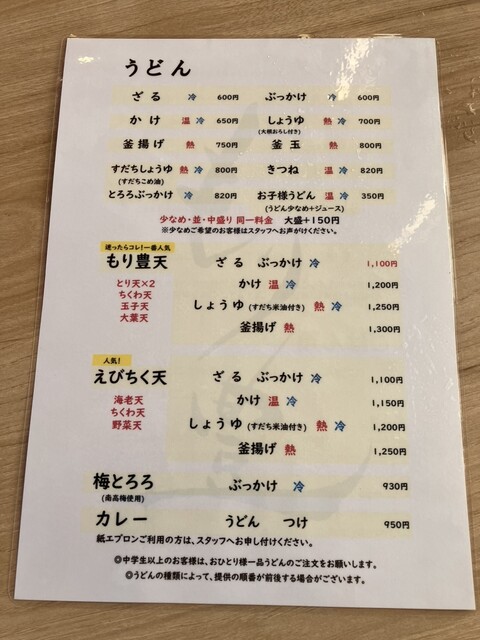 うどん
ざる 冷 600円 ぶっかけ 冷 600円
かけ 温 冷 650円 しょうゆ 熱 冷 700円
(大根おろし付き)
釜揚げ 熱 750円 釜玉 熱 800円
すだちしょうゆ 熱 冷 800円 きつね 温 冷 820円
(すだちこめ油)
とろろぶっかけ 冷 820円 お子様うどん 温 冷 350円
(うどん少なめ+ジュース)
少なめ・並・中盛り 同一料金 大盛+150円
※少なめご希望のお客様はスタッフへお声がけください。
迷ったらコレ!一番人気
もり豊天 ざる ぶっかけ 冷 1,100円
とり天×2 かけ 温 冷 1,200円
ちくわ天
玉子天 しょうゆ (すだち米油付き) 熱 冷 1,250円
大葉天
釜揚げ 熱 1,300円
人気!
えびちく天 ざる ぶっかけ 冷 1,100円
海老天 かけ 温 冷 1,150円
ちくわ天
野菜天 しょうゆ (すだち米油付き) 熱 冷 1,200円
釜揚げ 熱 1,250円
梅とろろ ぶっかけ 冷 930円
(南高梅使用)
カレー うどん つけ 950円
紙エプロンご利用の方は、スタッフへお申し付けください。
◎中学生以上のお客様は、おひとり様一品うどんのご注文をお願いします。
◎うどんの種類によって、提供の順番が前後する場合がございます。